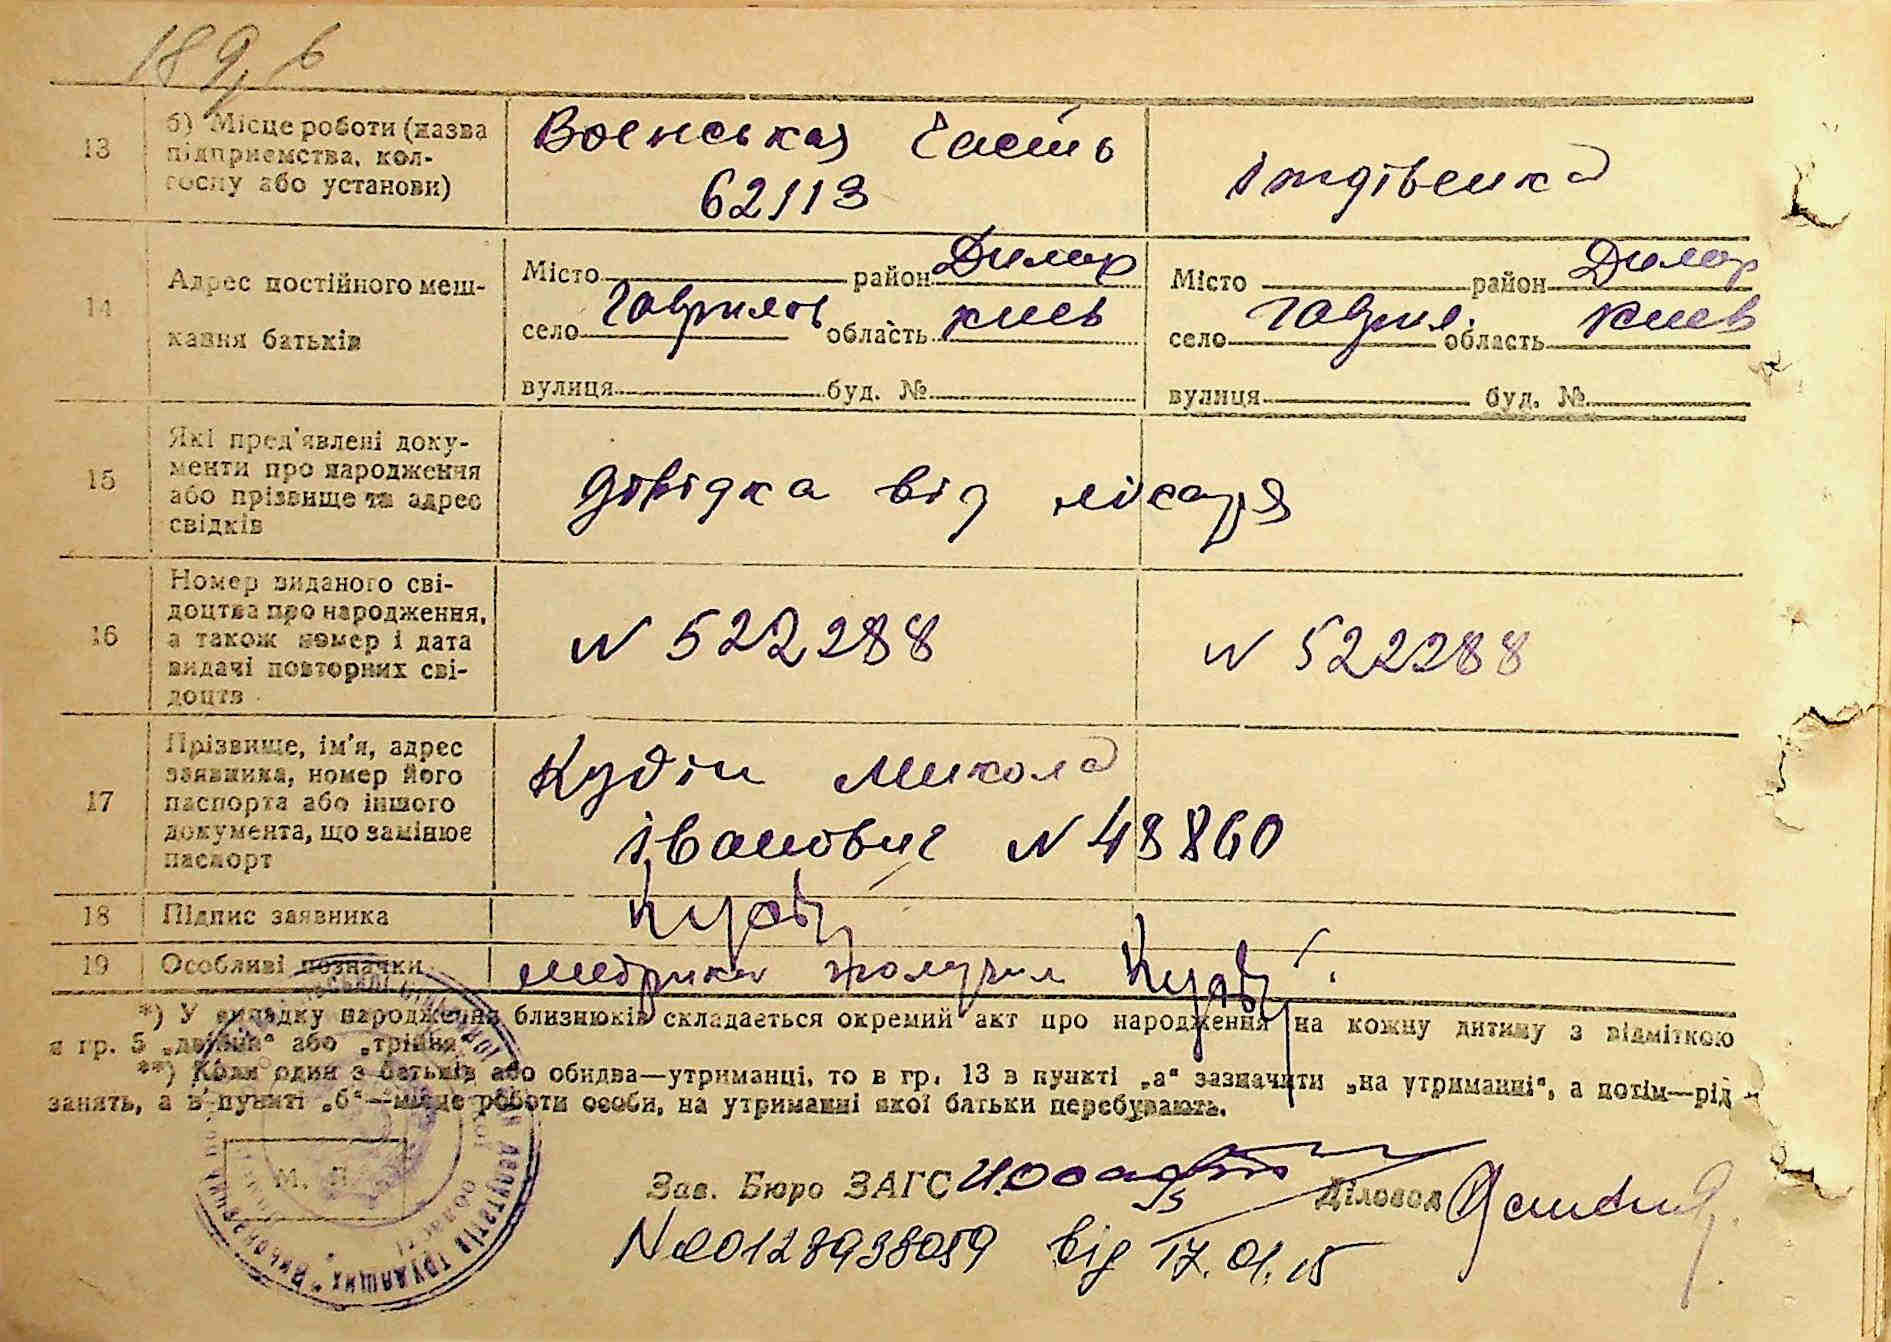 189, б
13
б) Місце роботи (назва
підприємства, кол-
госпу або установи)
Военськая Часть
62113
іждівенка
14
Адрес постійного меш-
кання батьків
Місто район Димер
село Гаврилов область киев
вулиця буд. №
Місто район Димер
село Гаврил. область Киев
вулиця буд. №
15
Які пред'явлені доку-
менти про народження
або прізвище та адрес
свідків
довідка від лікаря
16
Номер виданого сві-
доцтва про народження,
а також номер і дата
видачі повторних сві-
доцтв
N 522288
N 522288
17
Прізвище, ім'я, адрес
заявника, номер його
паспорта або іншого
документа, що замінює
паспорт
Кудін Микола
іванович N 48860
18
Підпис заявника
19
Особливі позначки
метрику получил
*) У випадку народження близнюків складається окремий акт про народження на кожну дитину з відміткою
в гр. 5 „двійня“ або „трійня“.
**) Коли один з батьків або обидва—утриманці, то в гр. 13 в пункті „а“ зазначити „на утриманні“, а потім—рід
занять, а в пункті „б“—місце роботи особи, на утриманні якої батьки перебувають.
М. П.
Зав. Бюро ЗАГС
Діловод
N 00128938059 від 17.01.15
депутатів трудящих